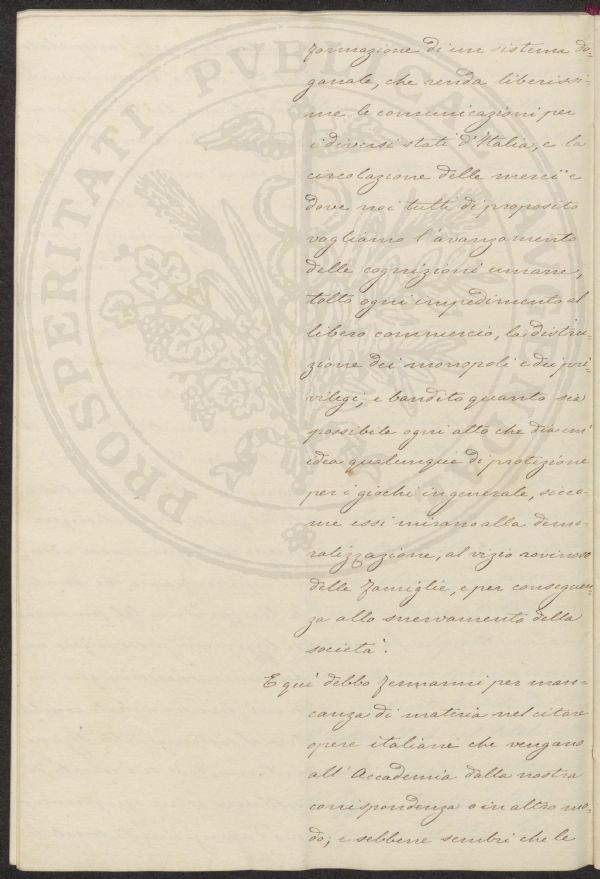 PROSPERITATI PVBLICAE AVGENDAE
formazione di un sistema do-
ganale, che renda liberissi-
me le comunicazioni per
i diversi stati d'Italia, e la
circolazione delle merci; e
dove noi tutti di proposito
vogliamo l'avanzamento
delle cognizioni umane,
tolto ogni impedimento al
libero commercio, la distru-
zione dei monopoli e dei pri-
vilegi, e bandito quanto sia
possibile ogni atto che dia un'
idea qualunque di protezione
per i giochi in generale, sicco-
me essi mirano alla demo-
ralizzazione, al vizio rovinoso
delle famiglie, e per conseguen-
za allo snervamento della
società.
E quì debbo fermarmi per man-
canza di materia nel citare
opere italiane che vengano
all'Accademia dalla nostra
corrispondenza o in altro mo-
do; e sebbene sembri che le